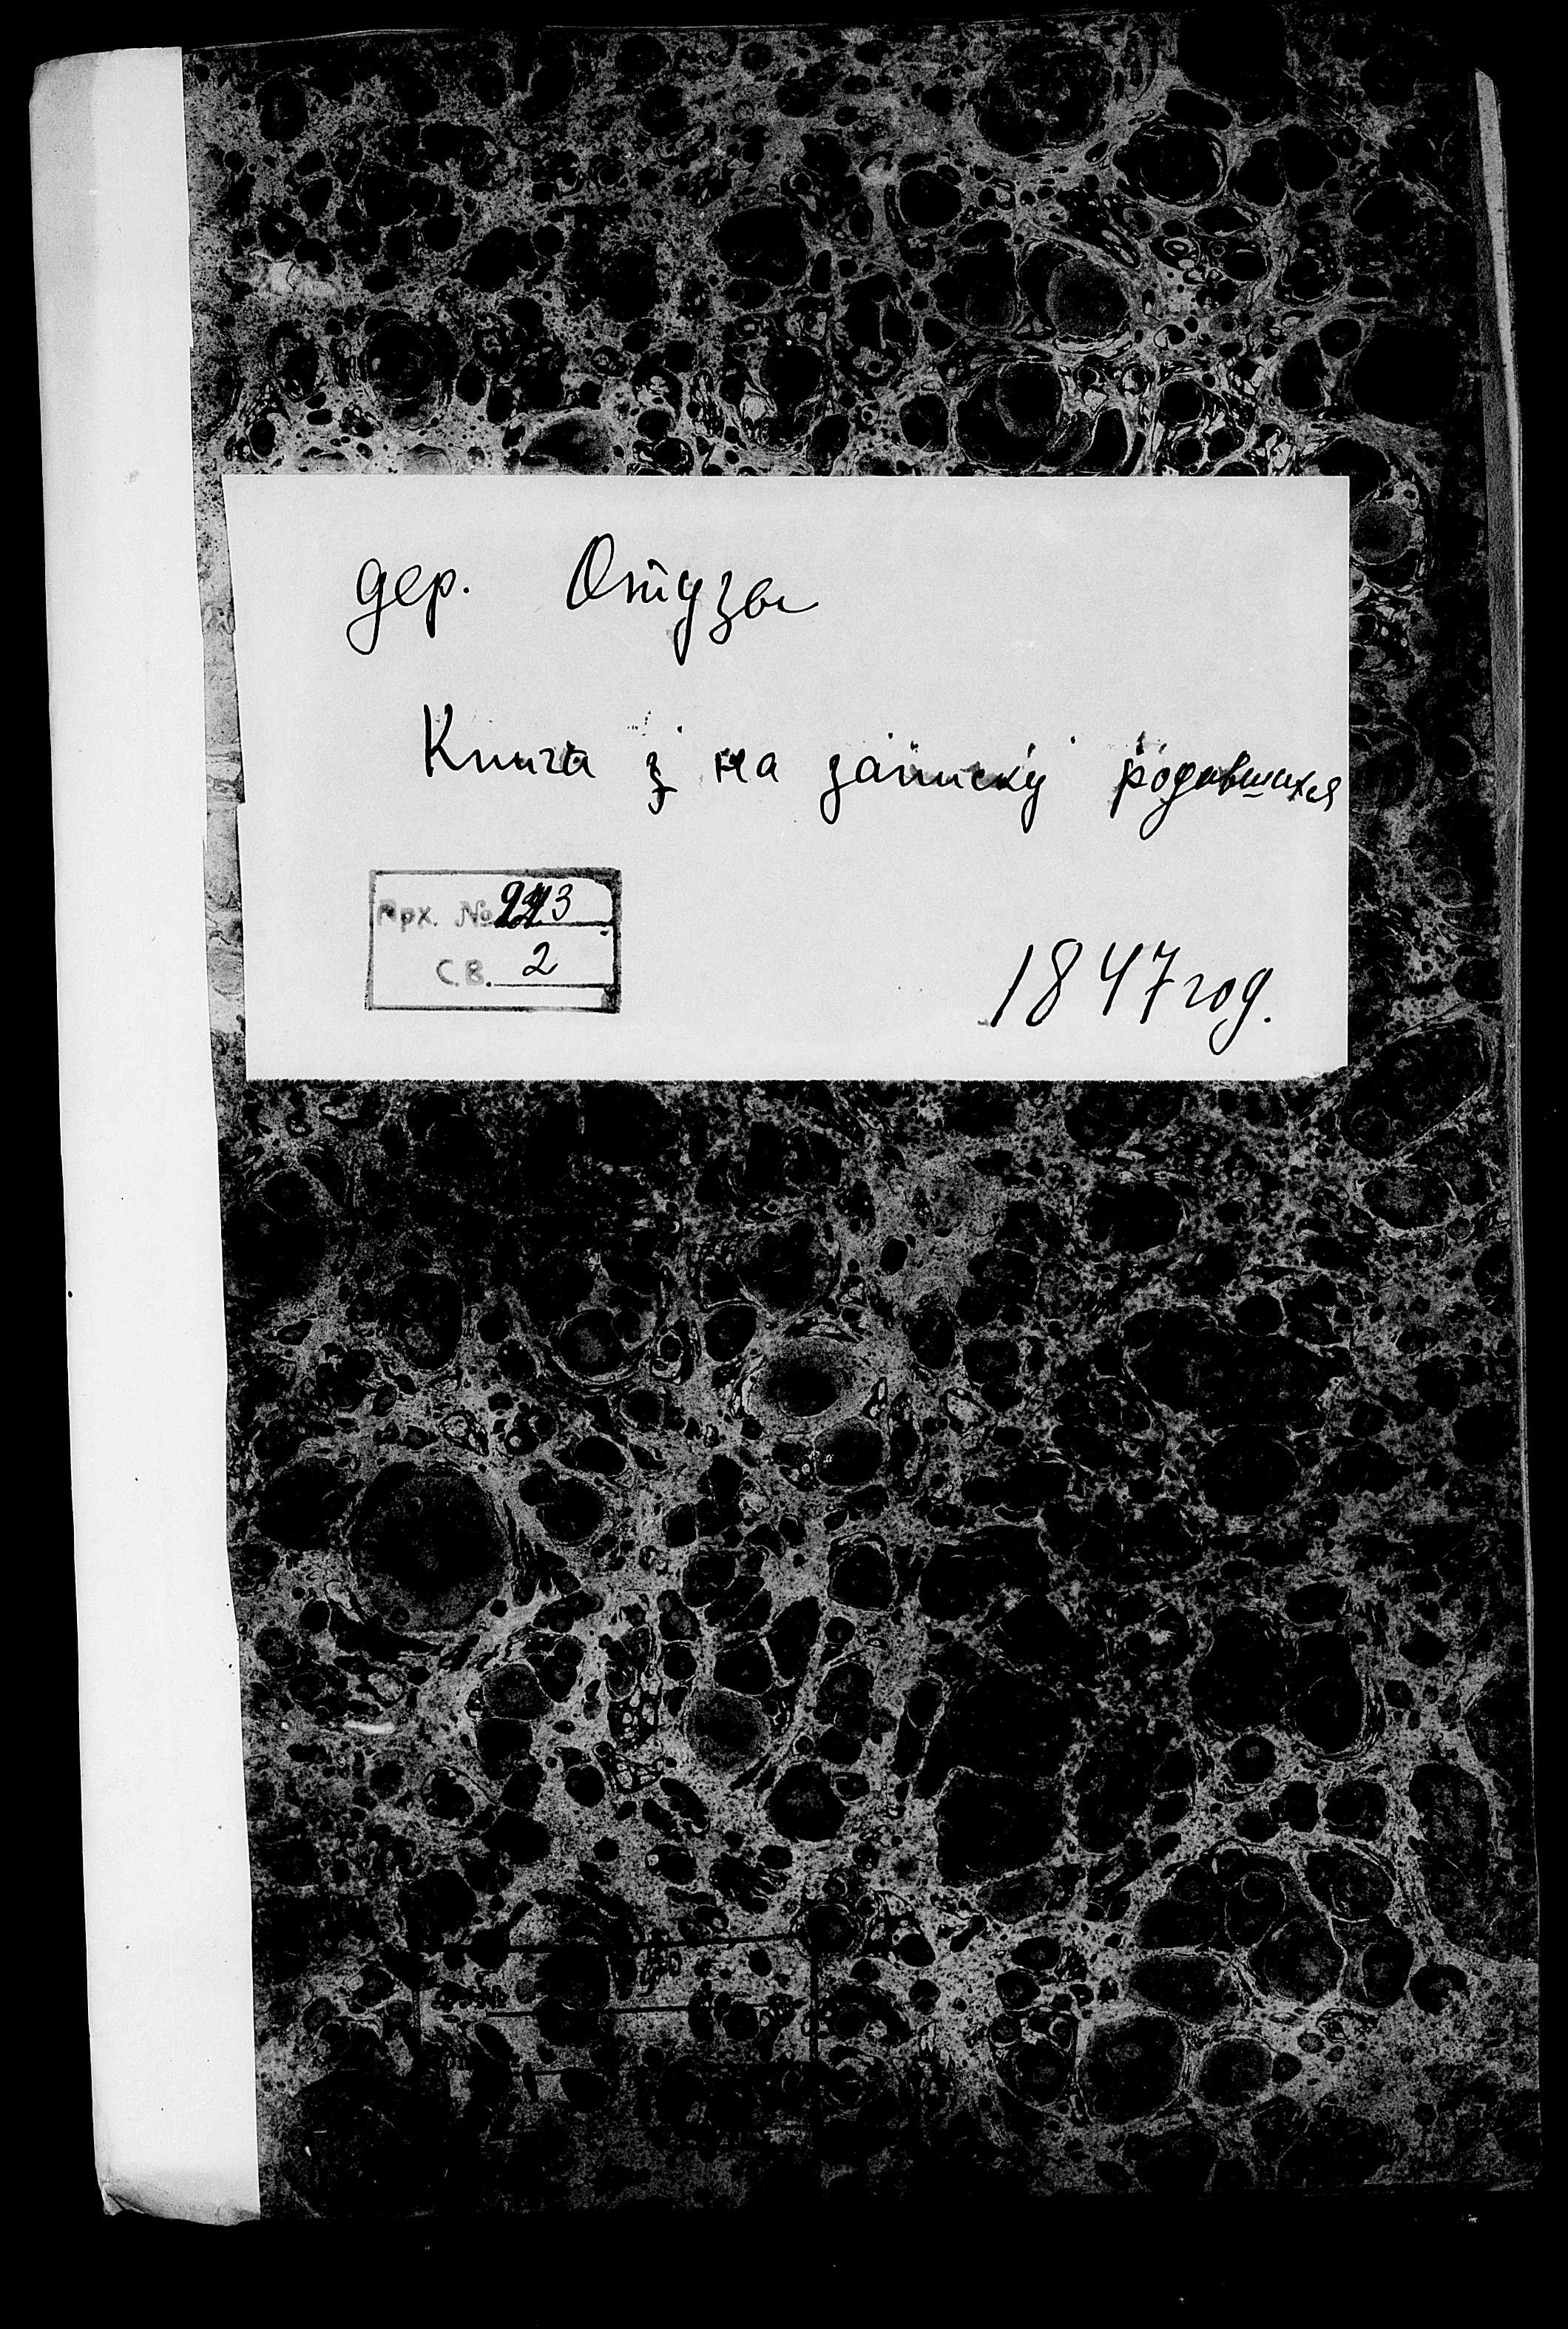 дер. Отузы
Книга з на записку родившихся
Арх. №
С.В. 2
1847 год.